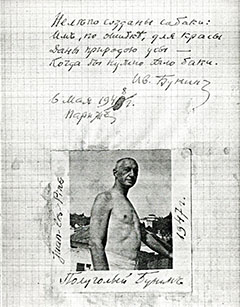 Нелѣпо созданы собаки:
Имъ, по ошибкѣ, для красы
Даны природою усы —
Когда бы нужно было баки.
Ив. Бунинъ
6 Мая 1948 г.
Парижъ
Juan-les-Pins
1947 г.
Полуголый Бунинъ.